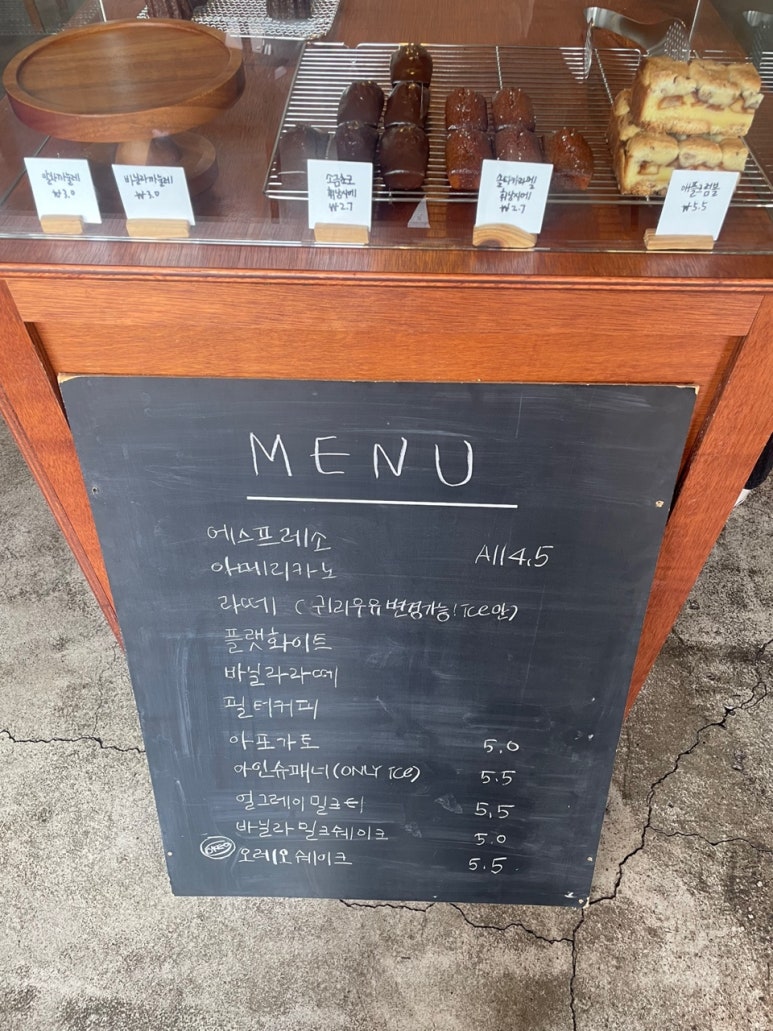 바닐라까눌레
₩3.0
₩3.0
소금초코
휘낭시에
₩2.7
솔티카라멜
휘낭시에
₩2.7
애플크럼블
₩5.5
MENU
에스프레소
All 4,5
아메리카노
라떼 (귀리우유변경가능! ice만)
플랫화이트
바닐라라떼
필터커피
아포가토 5.0
아인슈패너(ONLY ice) 5.5
얼그레이밀크티 5,5
바닐라밀크쉐이크 5.0
오레오쉐이크 5.5